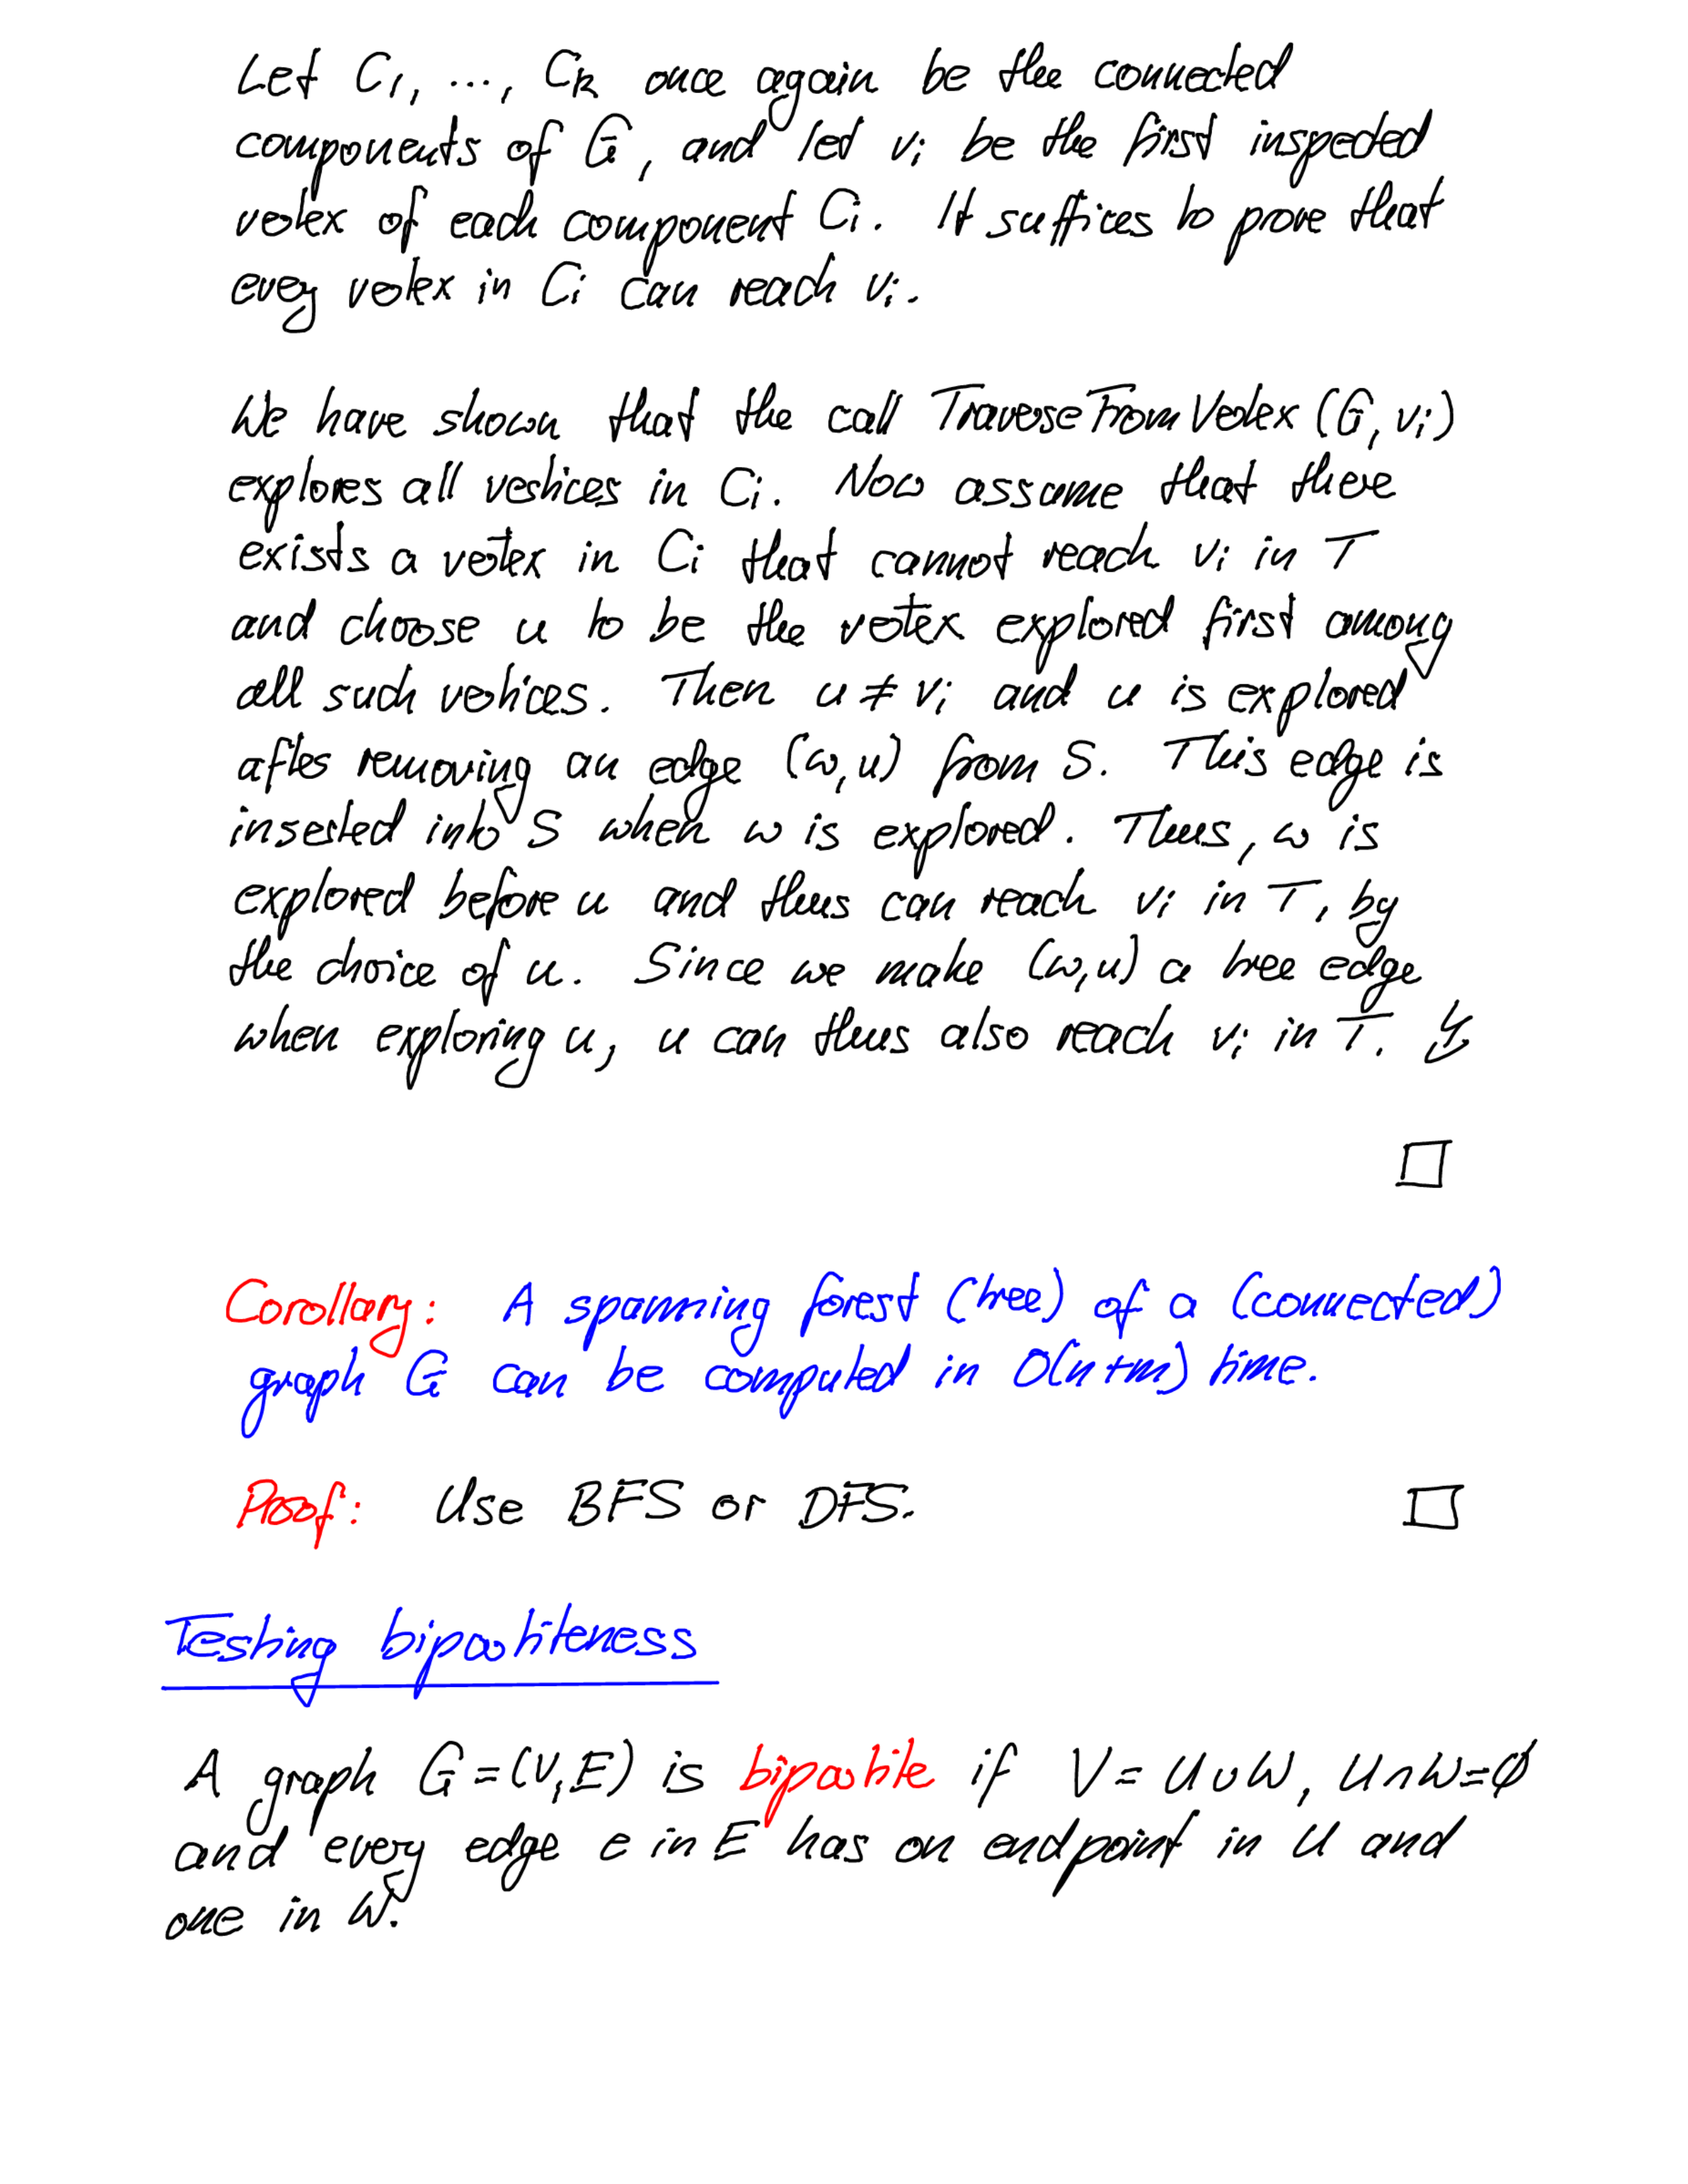 Let C₁, ..., Cₖ once again be the connected
components of G, and let vᵢ be the first inspected
vertex of each component Cᵢ. It suffices to prove that
every vertex in Cᵢ can reach vᵢ.
We have shown that the call TraverseFromVertex (G, vᵢ)
explores all vertices in Cᵢ. Now assume that there
exists a vertex in Cᵢ that cannot reach vᵢ in T
and choose u to be the vertex explored first among
all such vertices. Then u ≠ vᵢ and u is explored
after removing an edge (w, u) from S. This edge is
inserted into S when w is explored. Thus, w is
explored before u and thus can reach vᵢ in T, by
the choice of u. Since we make (w, u) a tree edge
when exploring u, u can thus also reach vᵢ in T. ↯
□
Corollary: A spanning forest (tree) of a (connected)
graph G can be computed in O(n+m) time.
Proof: Use BFS or DFS. □
Testing bipartiteness
A graph G = (V, E) is bipartite if V = U ∪ W, U ∩ W = ∅
and every edge e in E has on endpoint in U and
one in W.